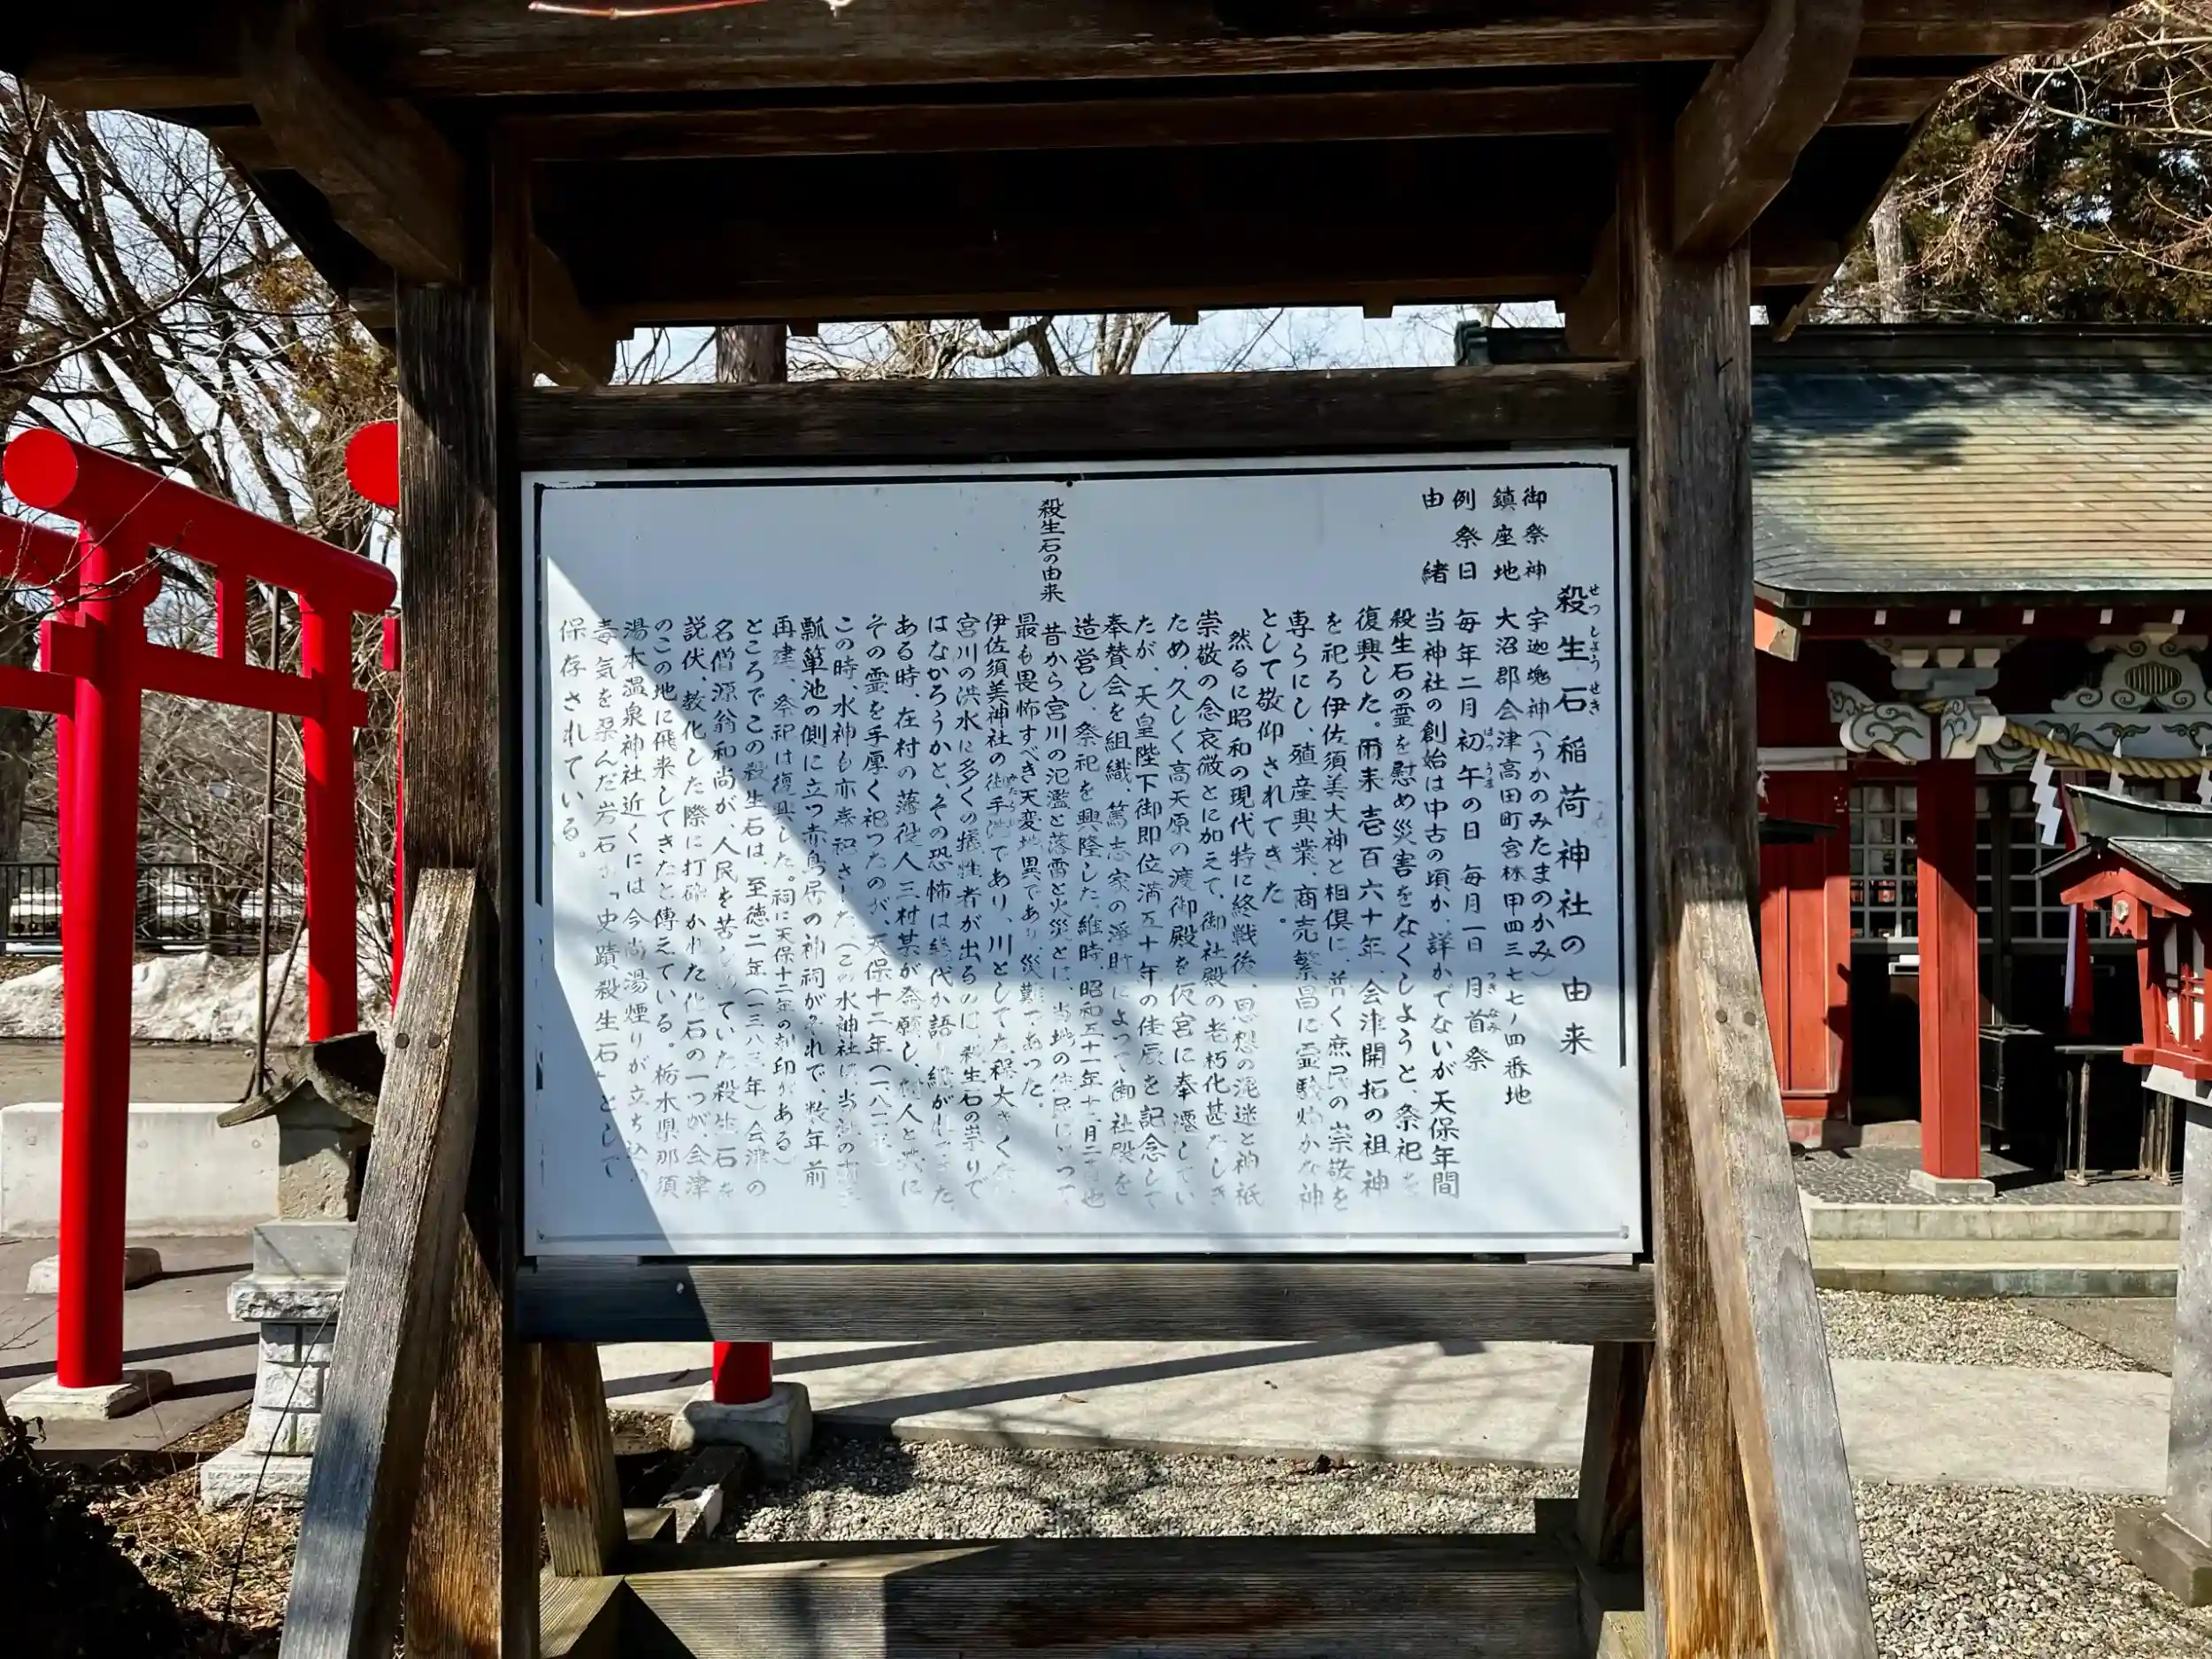 殺生石稲荷神社の由来
せつしょうせき
御祭神 宇迦魂神(うかのみたまのかみ)
鎮座地 大沼郡会津高田町宮林甲四三七七ノ四番地
例祭日 毎年二月初午の日 毎月一日 月首祭
はつうま
つきなみ
由緒 当神社の創始は中古の頃か、詳かでないが天保年間
殺生石の霊を慰め災害をなくしようと、祭祀を
復興した。爾来壱百六十年、会津開拓の祖神
を祀る伊佐須美大神と相倶に、普く庶民の崇敬を
専らにし、殖産興業、商売繁昌に霊験灼かな神
として敬仰されてきた。
然るに昭和の現代特に終戦後、思想の混迷と神祇
崇敬の念衰微とに加えて、御社殿の老朽化甚だしき
ため、久しく高天原の渡御殿を仮宮に奉遷してい
たが、天皇陛下御即位満五十年の佳辰を記念して
奉賛会を組織、篤志家の浄財によって御社殿を
造営し、祭祀を興隆した、維時、昭和五十一年十二月二 也
殺生石の由来
昔から宮川の氾濫と落雷と火災とは、当地の住民にとって
最も畏怖すべき天変地異であり、災難であった。
伊佐須美神社の御手洗であり、川としてた程大きくな
みたらし
宮川の洪水に多くの犠牲者が出るのに、殺生石の祟りで
はなかろうかと、その恐怖は幾代か語り継がれてきた。
ある時、在村の薄役人三村某が発願し、村人と共に
その霊を手厚く祀ったのが、天保十二年(一八 年)
この時、水神も亦奉祀された(この水神社は、当社の
瓢箪池の側に立つ赤鳥居の神祠がそれで、数年前
再建、祭祀は復興した。祠に天保十二年の刻印がある)
ところでこの殺生石は、至徳二年(一三八三年)会津の
名僧源翁和尚が、人民を苦しめていた殺生石を
説伏、教化した際に打砕かれた化石の一つが、会津
のこの地に飛来してきたと傳えている。栃木県那須
湯本温泉神社近くには今尚湯煙りが立ち込め
毒気を孕んだ岩石が「史蹟殺生石」として
保存されている。